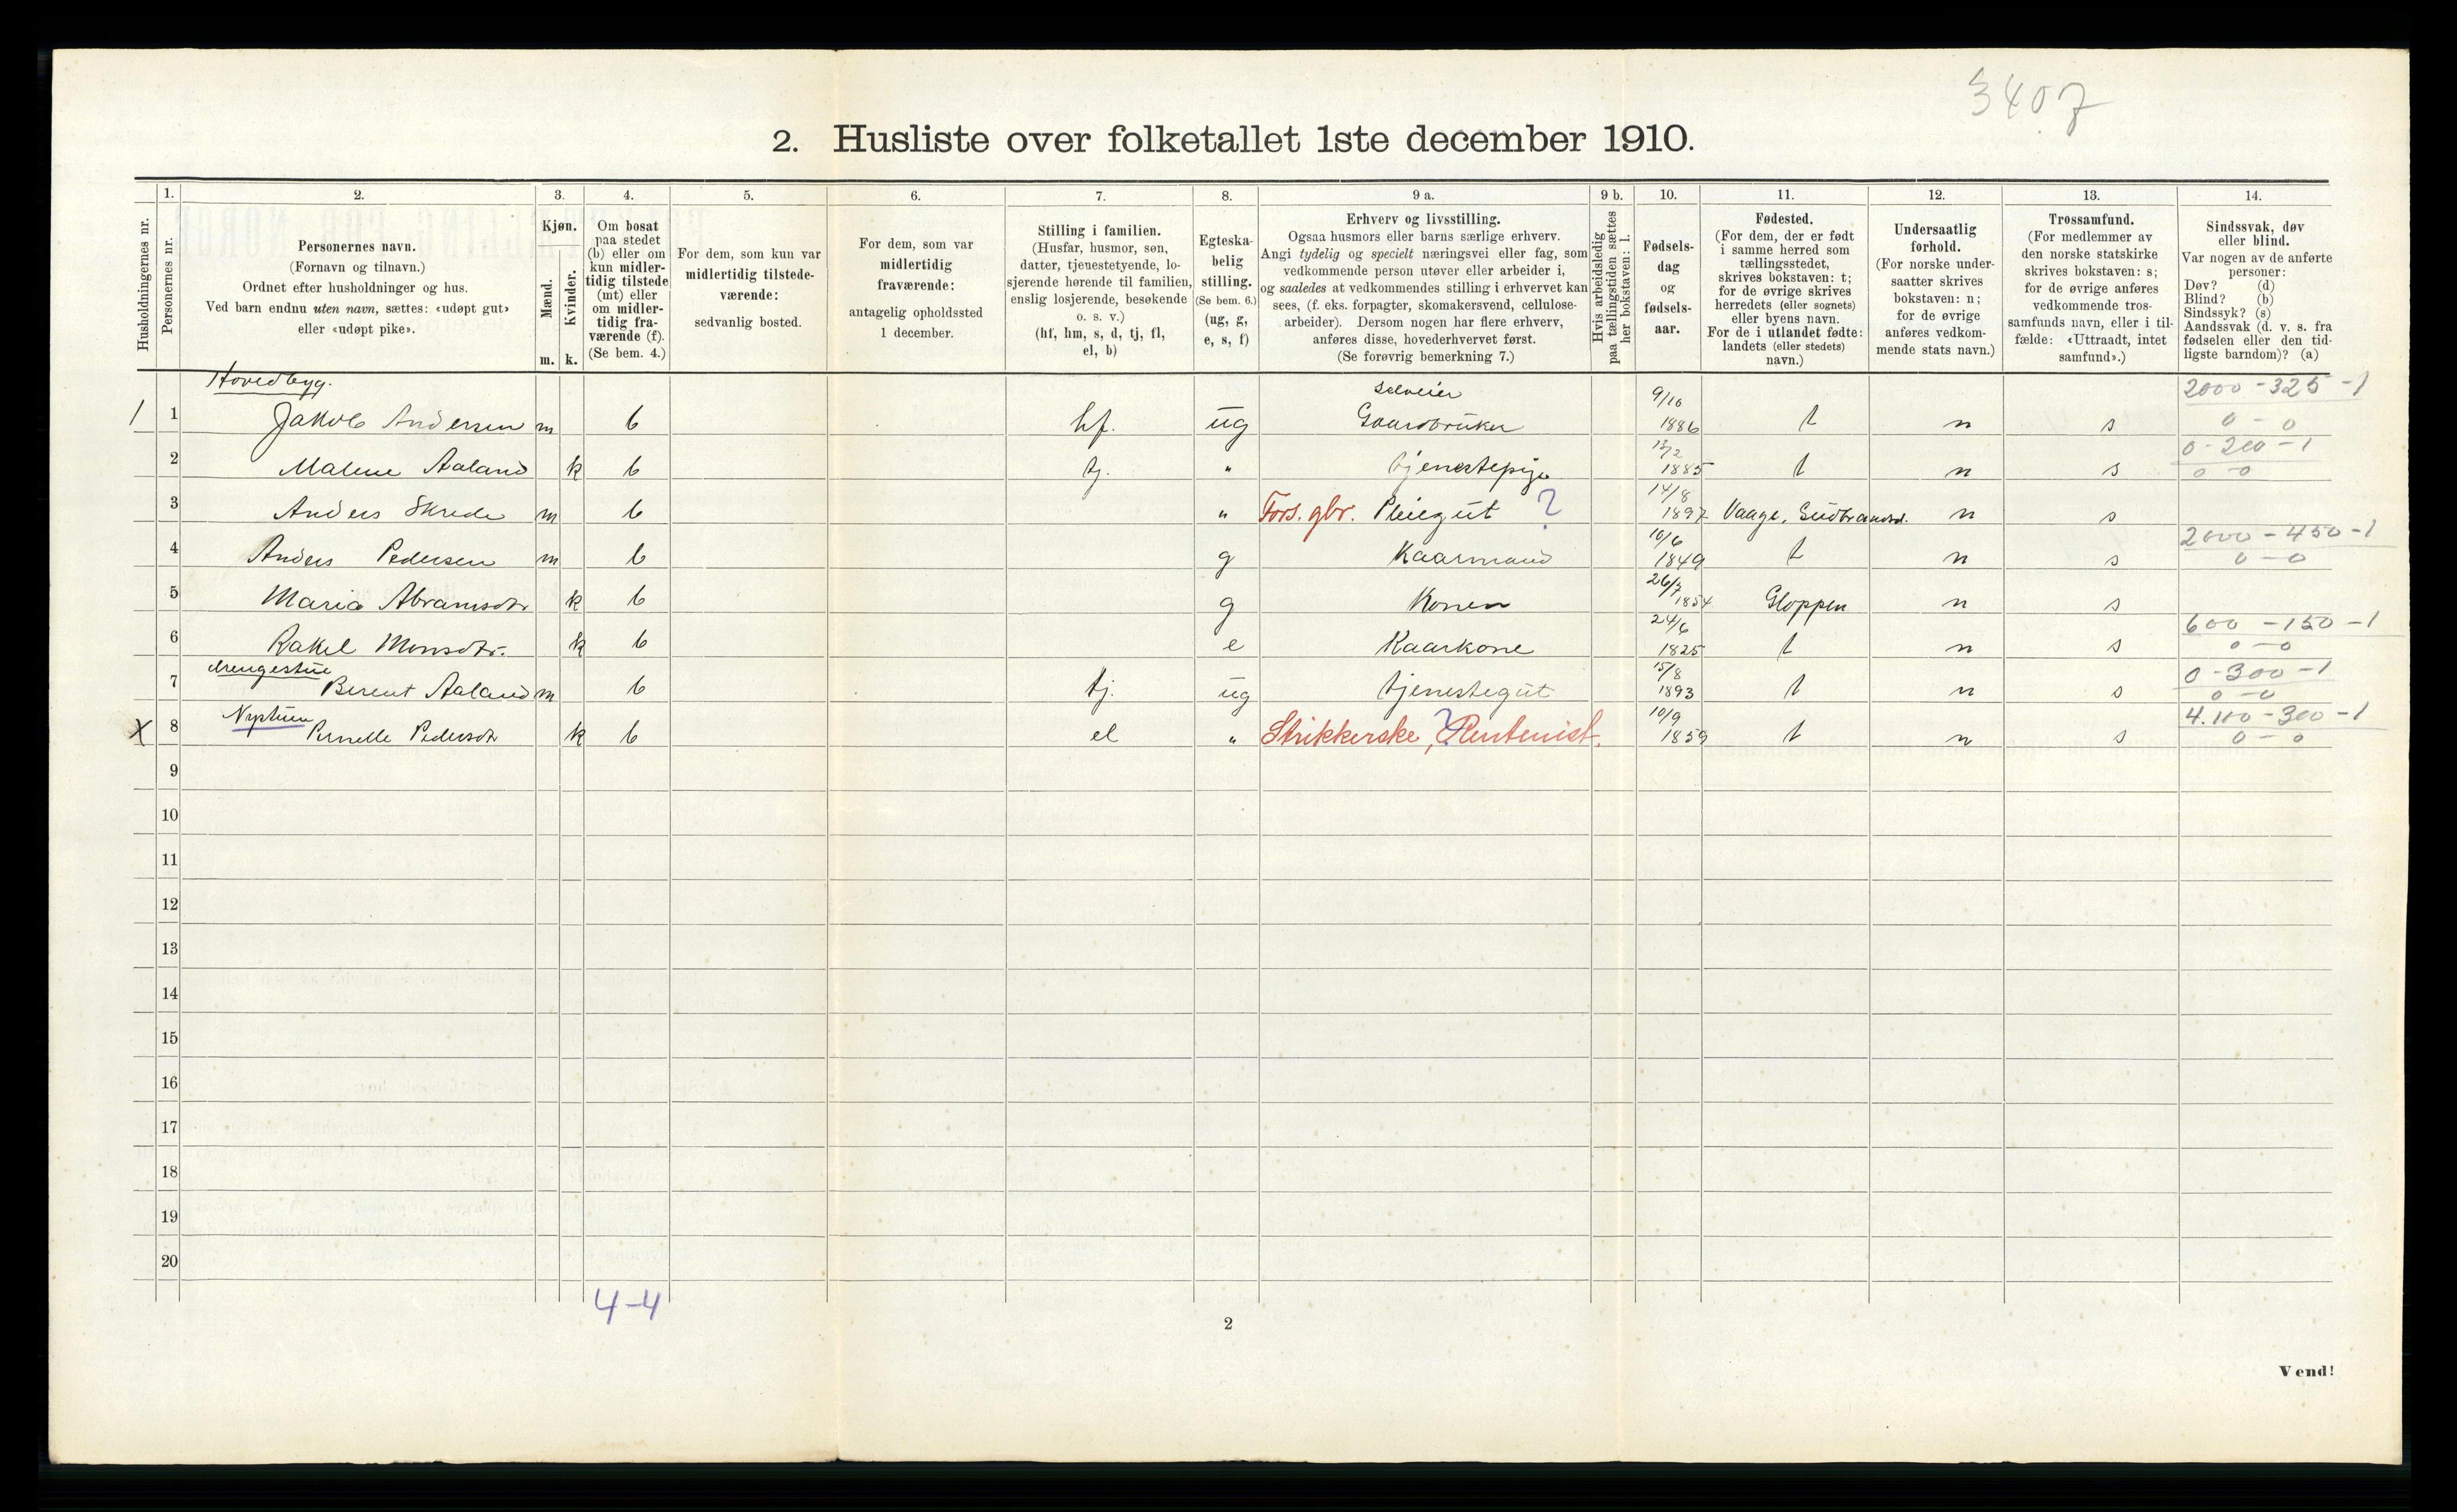 3407
2. Husliste over folketallet 1ste december 1910.
Husholdningernes nr.
1.
Personernes nr.
2.
Personernes navn.
(Fornavn og tilnavn.)
Ordnet efter husholdninger og hus.
Ved barn endnu uten navn, sættes: «udøpt gut»
eller «udøpt pike».
3.
Kjøn.
Mænd.
Kvinder.
m. k.
4.
Om bosat
paa stedet
(b) eller om
kun midler-
tidig tilstede
(mt) eller
om midler-
tidig fra-
værende (f).
(Se bem. 4.)
5.
For dem, som kun var
midlertidig tilstede-
værende:
sedvanlig bosted.
6.
For dem, som var
midlertidig
fraværende:
antagelig opholdssted
1 december.
7.
Stilling i familien.
(Husfar, husmor, søn,
datter, tjenestetyende, lo-
sjerende hørende til familien,
enslig losjerende, besøkende
o. s. v.)
(hf, hm, s, d, tj, fl,
el, b)
8.
Egteska-
belig
stilling.
(Se bem. 6.)
(ug, g,
e, s, f)
9 a.
Erhverv og livsstilling.
Ogsaa husmors eller barns særlige erhverv.
Angi tydelig og specielt næringsvei eller fag, som
vedkommende person utøver eller arbeider i,
og saaledes at vedkommendes stilling i erhvervet kan
sees, (f. eks. forpagter, skomakersvend, cellulose-
arbeider). Dersom nogen har flere erhverv,
anføres disse, hovederhvervet først.
(Se forøvrig bemerkning 7.)
9 b.
Hvis arbeidsledig
paa tællingstiden sættes
her bokstaven: l.
10.
Fødsels-
dag
og
fødsels-
aar.
11.
Fødested.
(For dem, der er født
i samme herred som
tællingsstedet,
skrives bokstaven: t;
for de øvrige skrives
herredets (eller sognets)
eller byens navn.
For de i utlandet fødte:
landets (eller stedets)
navn.)
12.
Undersaatlig
forhold.
(For norske under-
saatter skrives
bokstaven: n;
for de øvrige
anføres vedkom-
mende stats navn.)
13.
Trossamfund.
(For medlemmer av
den norske statskirke
skrives bokstaven: s;
for de øvrige anføres
vedkommende tros-
samfunds navn, eller i til-
fælde: «Uttraadt, intet
samfund».)
14.
Sindssvak, døv
eller blind.
Var nogen av de anførte
personer:
Døv? (d)
Blind? (b)
Sindssyk? (s)
Aandssvak (d. v. s. fra
fødselen eller den tid-
ligste barndom)? (a)
Hovedbyg.
Selveier 9/10 2000-325-1
1 1 Jakob Andersen m b hf. ug Gaardbruker 1886 t n s 0-0
13/2 0-200-1
2 Malene Aaland k b tj. " tjenestepige 1885 t n s 0-0
14/8
3 Anders Skrede m b " Fors. gbr. Pleiegut ? 1897 Vaage, Gudbrandsd. n s
10/6 2000-450-1
4 Anders Pedersen m b g Kaarmand 1849 t n s 0-0
26/7
5 Maria Abramsdtr k b g Konen 1854 Gloppen n s
24/6 600-150-1
6 Rakel Monsdtr. k b e Kaarkone 1825 t n s 0-0
drengestue 15/8 0-300-1
7 Berent Aaland m b tj. ug tjenestegut 1893 t n s 0-0
Nystuen 10/9 4.100-300-1
X 8 Pernelle Pedersdtr k b el " Strikkerske, ? Rentenist. 1859 t n s 0-0
9
10
11
12
13
14
15
16
17
18
19
20
4-4
2
Vend!